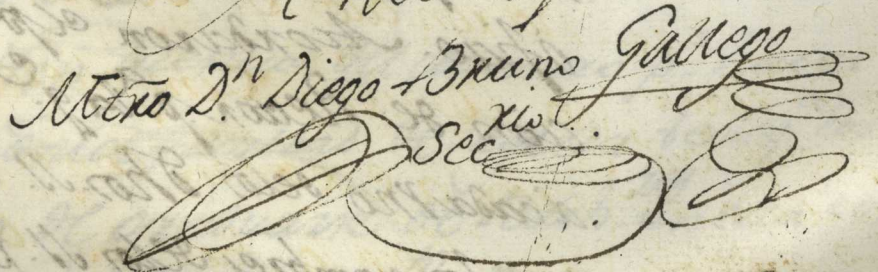 Mtro D.n Diego Bruno Gallego
Sec.rio